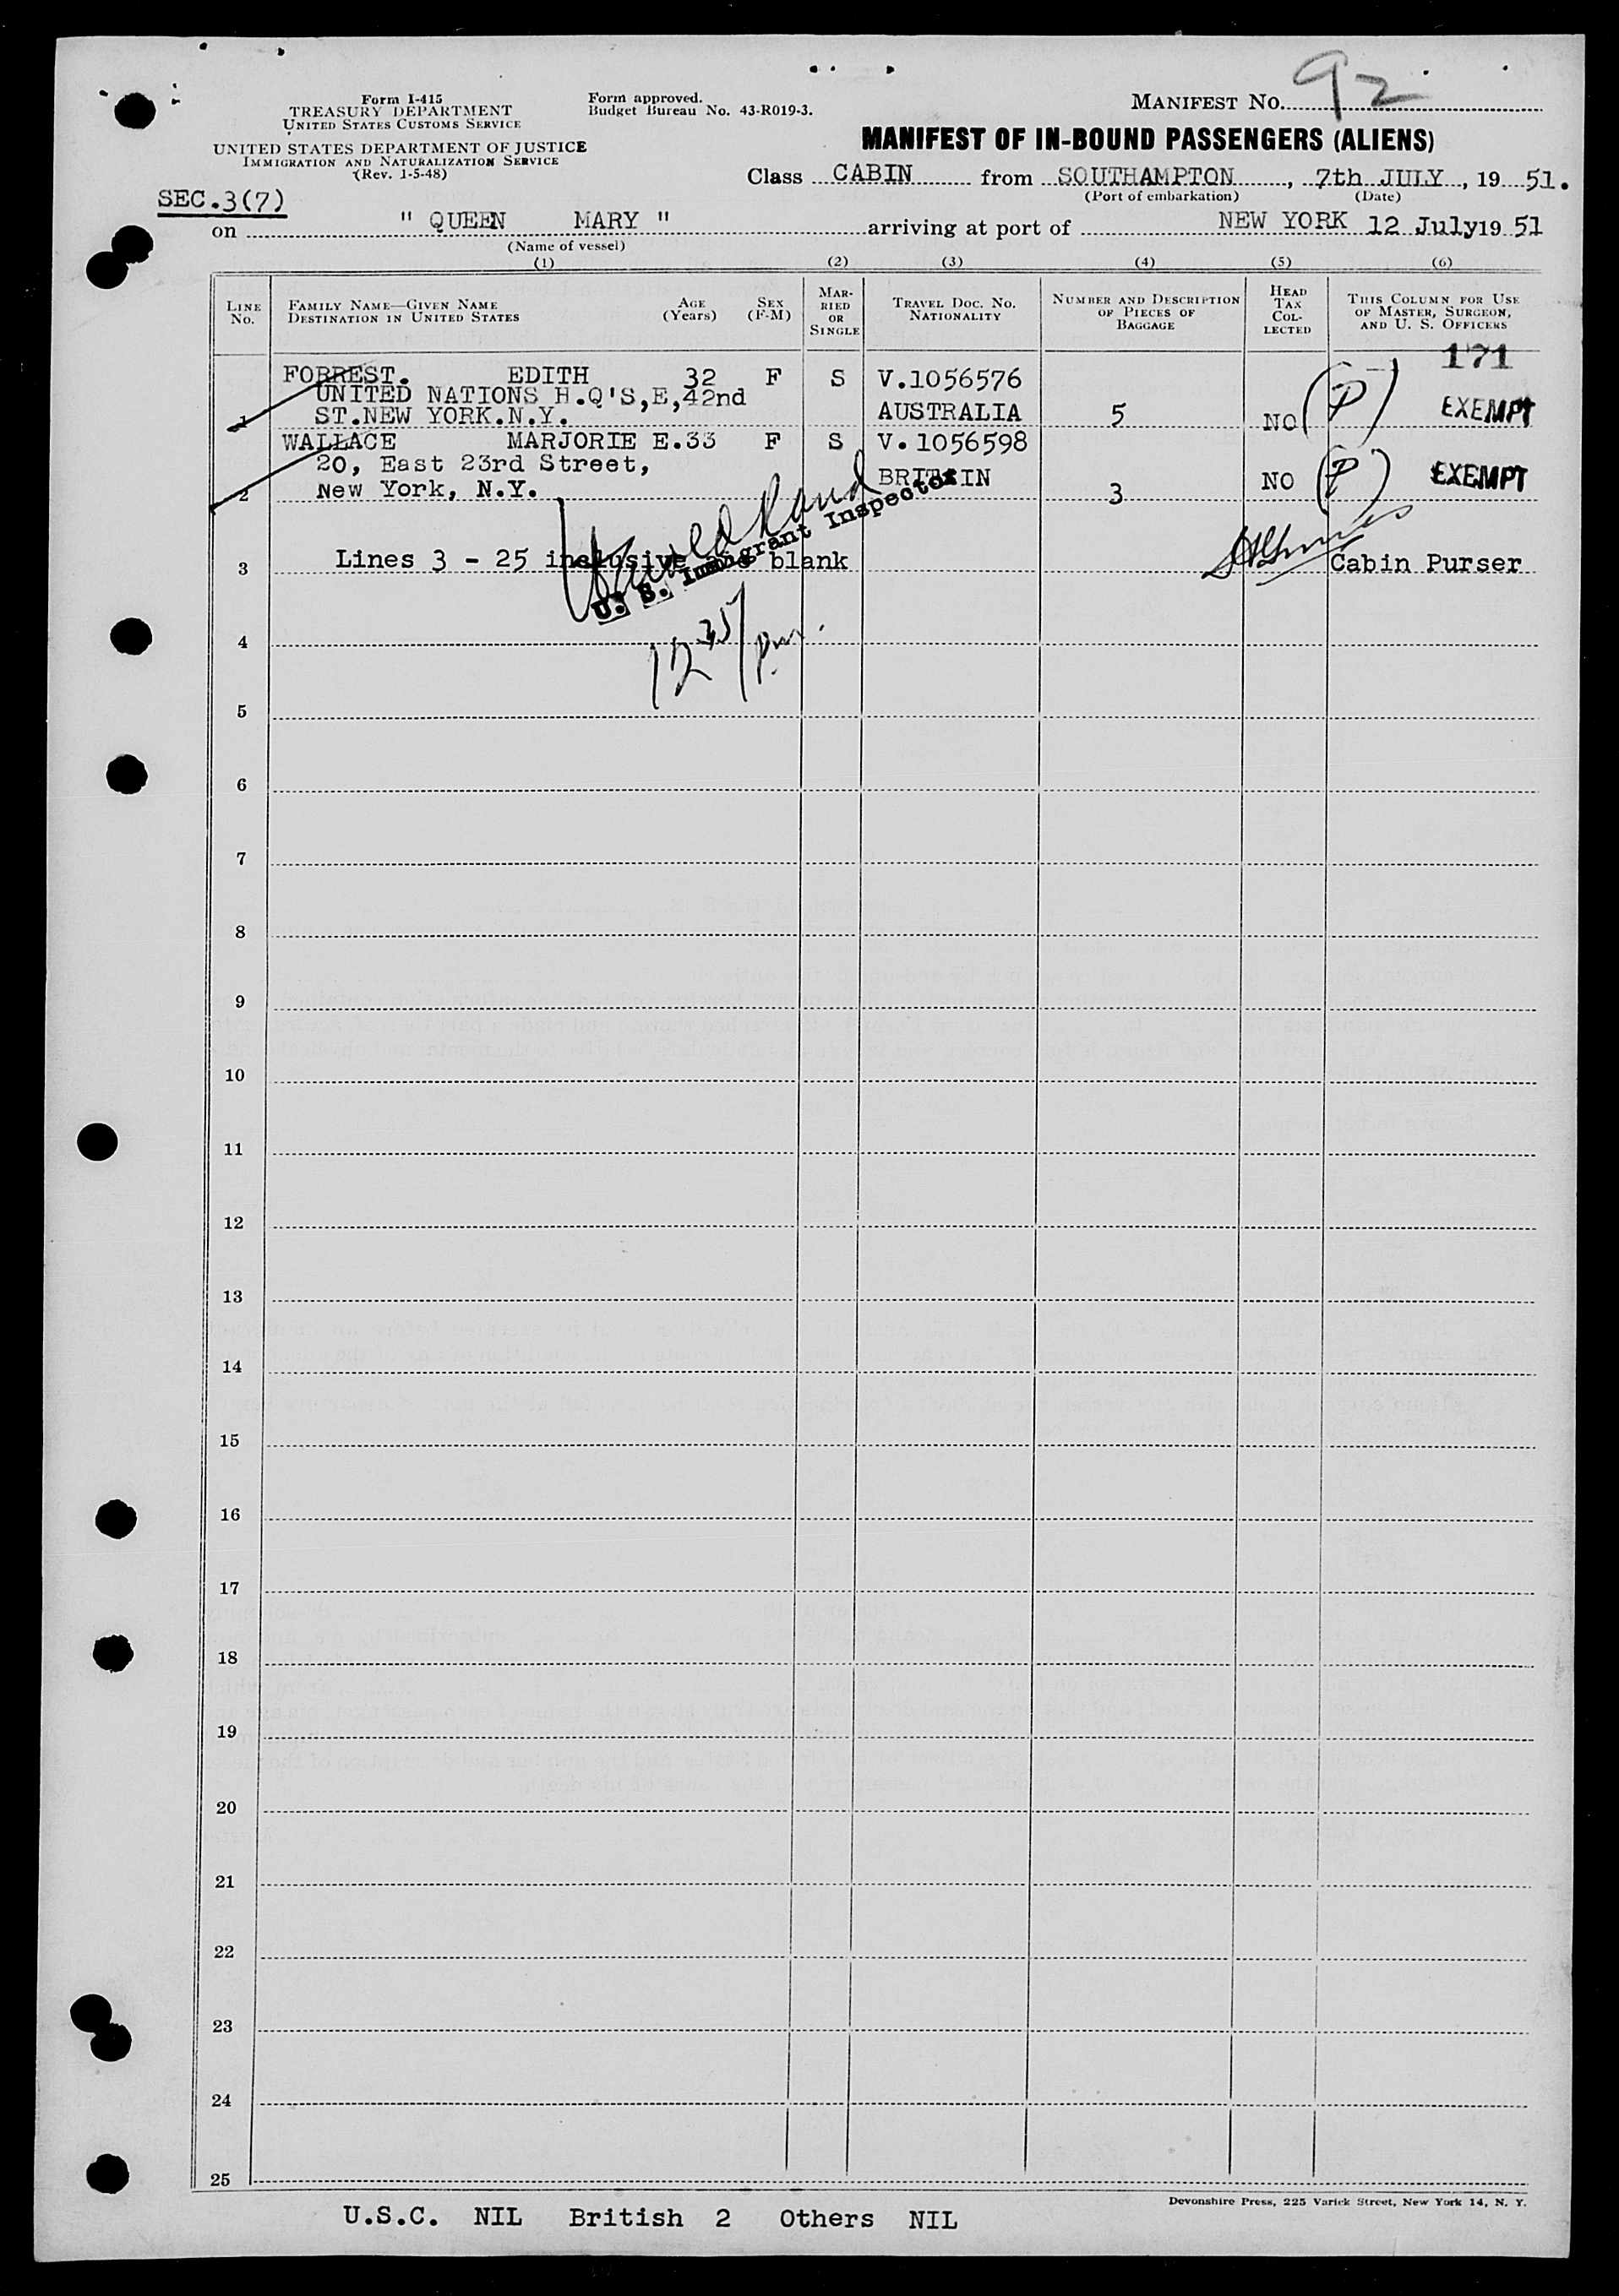 92
Form I-415
TREASURY DEPARTMENT
UNITED STATES CUSTOMS SERVICE
UNITED STATES DEPARTMENT OF JUSTICE
IMMIGRATION AND NATURALIZATION SERVICE
(Rev. 1-5-48)
Form approved.
Budget Bureau No. 43-R019-3.
MANIFEST NO.
MANIFEST OF IN-BOUND PASSENGERS (ALIENS)
Class CABIN from SOUTHAMPTON, 7th JULY, 19 51.
(Port of embarkation) (Date)
SEC.3(7)
on " QUEEN MARY " arriving at port of NEW YORK 12 July 19 51
(Name of vessel)
(1) (2) (3) (4) (5) (6)
LINE No. FAMILY NAME—GIVEN NAME DESTINATION IN UNITED STATES AGE (Years) SEX (F-M) MARRIED OR SINGLE TRAVEL DOC. NO. NATIONALITY NUMBER AND DESCRIPTION OF PIECES OF BAGGAGE HEAD TAX COLLECTED THIS COLUMN FOR USE OF MASTER, SURGEON, AND U. S. OFFICERS
171
FORREST. EDITH 32 F S V.1056576
UNITED NATIONS H.Q'S,E,42nd
1 ST.NEW YORK.N.Y. AUSTRALIA 5 NO (P) EXEMPT
WALLACE MARJORIE E.33 F S V.1056598
20, East 23rd Street, BRITAIN
2 New York, N.Y. 3 NO (P) EXEMPT
U. S. Immigrant Inspector
3 Lines 3 - 25 inclusive are blank Cabin Purser
12 35/pm.
4
5
6
7
8
9
10
11
12
13
14
15
16
17
18
19
20
21
22
23
24
25
Devonshire Press, 225 Varick Street, New York 14, N. Y.
U.S.C. NIL British 2 Others NIL